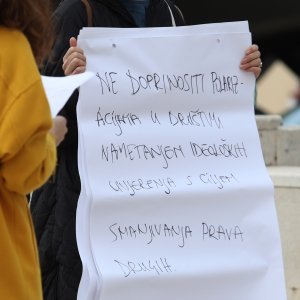 NE DOPRINOSITI POLARIZ-
ACIJAMA U DRUŠTVU
NAMETANJEM IDEOLOŠKIH
UVJERENJA S CILJEM
SMANJIVANJA PRAVA
DRUGIH.